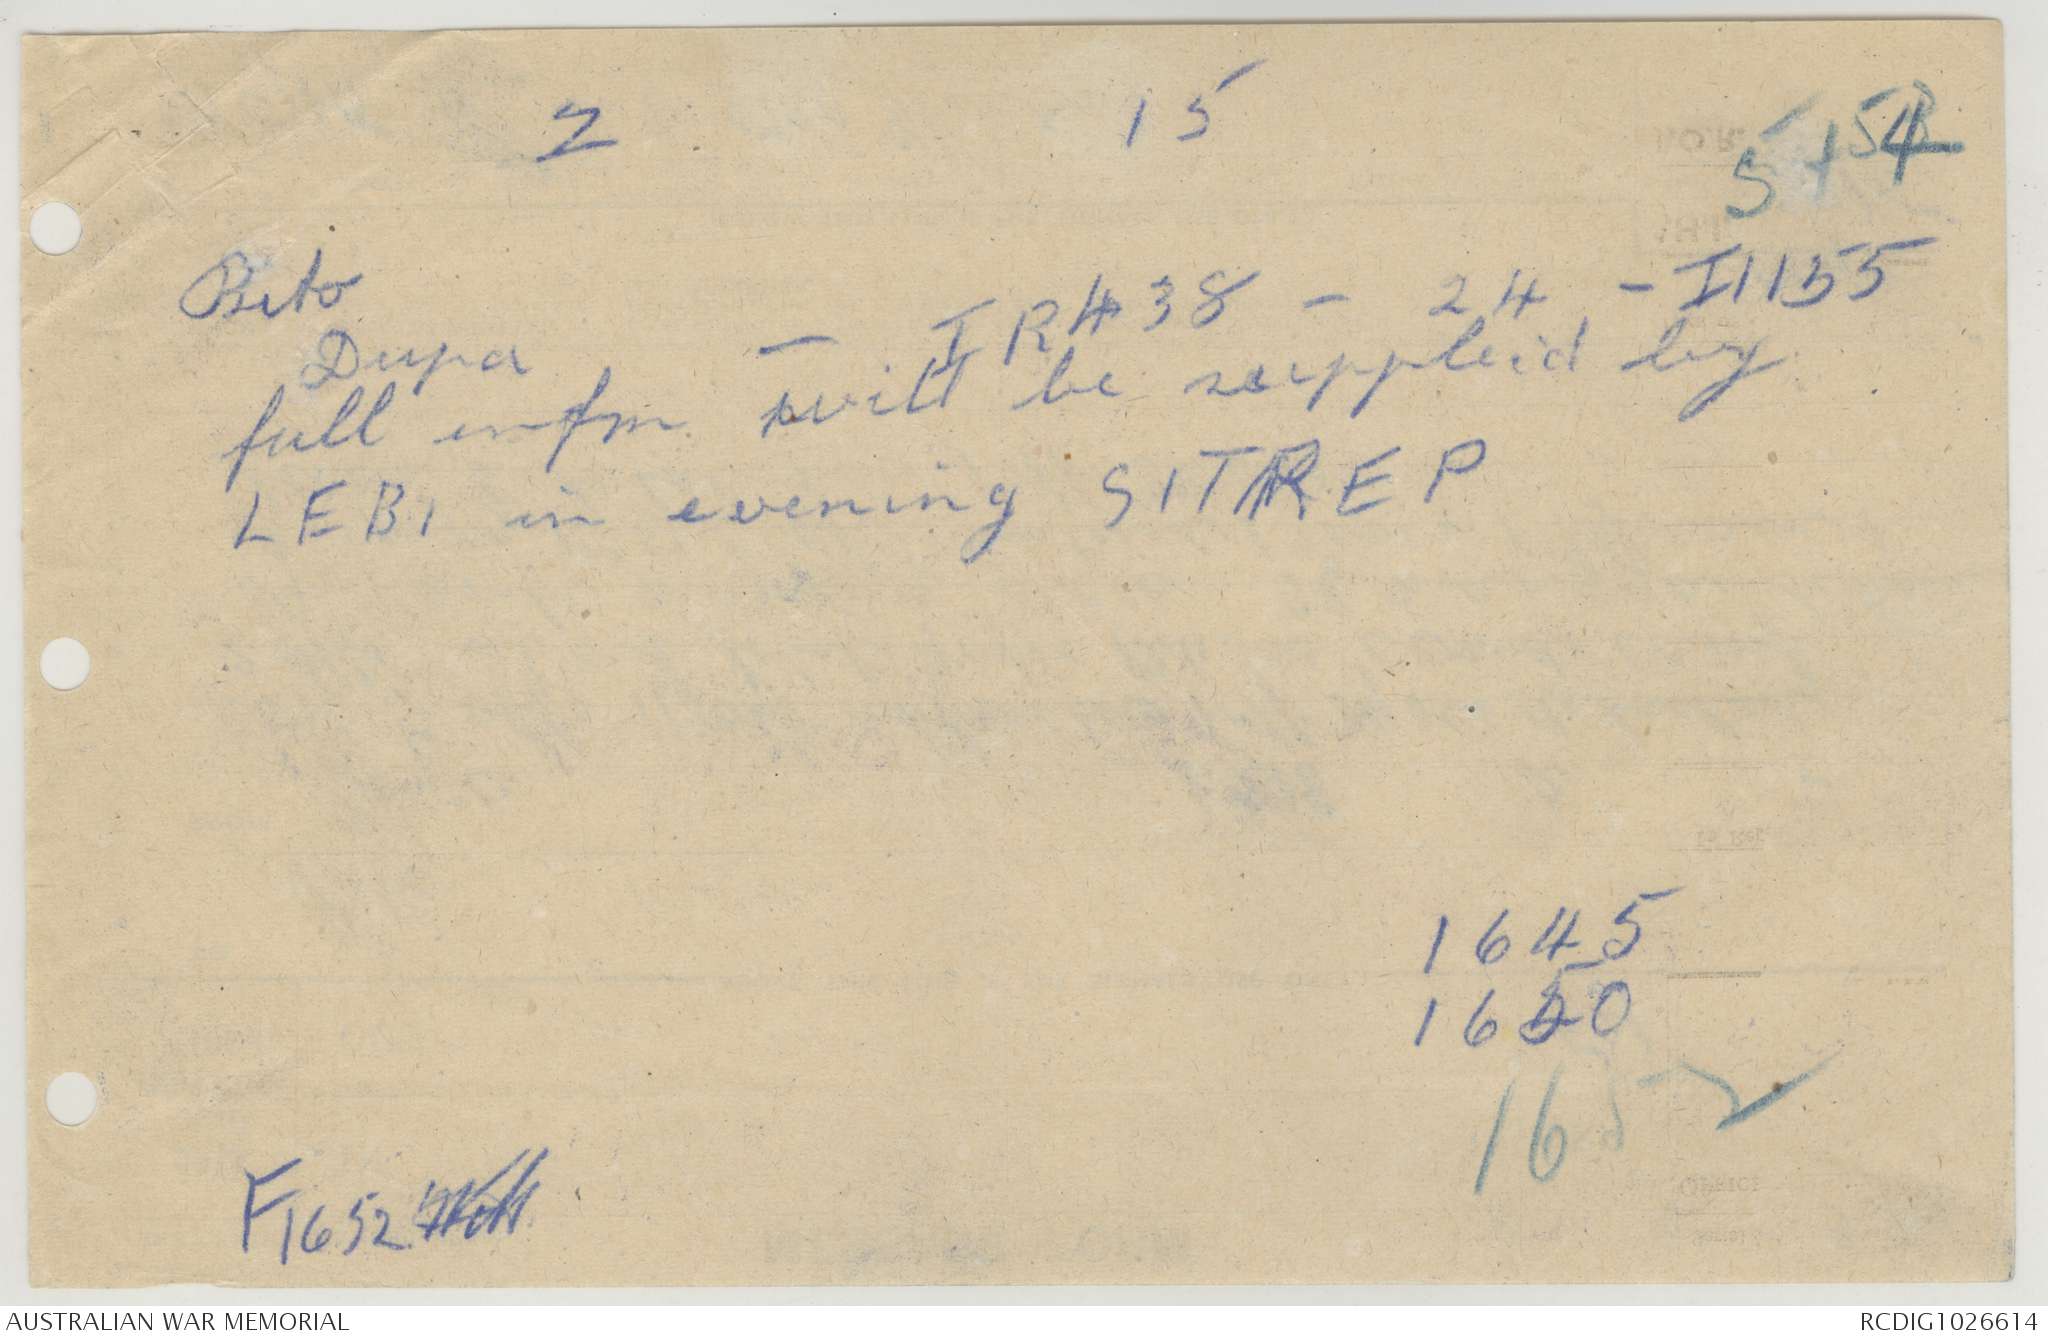 2 15 5154
Beto
Dupa — IR438 - 24 - I1155
full infm will be suppleid by
LEBI in evening SITREP
1645
1650
1652
F1652
AUSTRALIAN WAR MEMORIAL RCDIG1026614